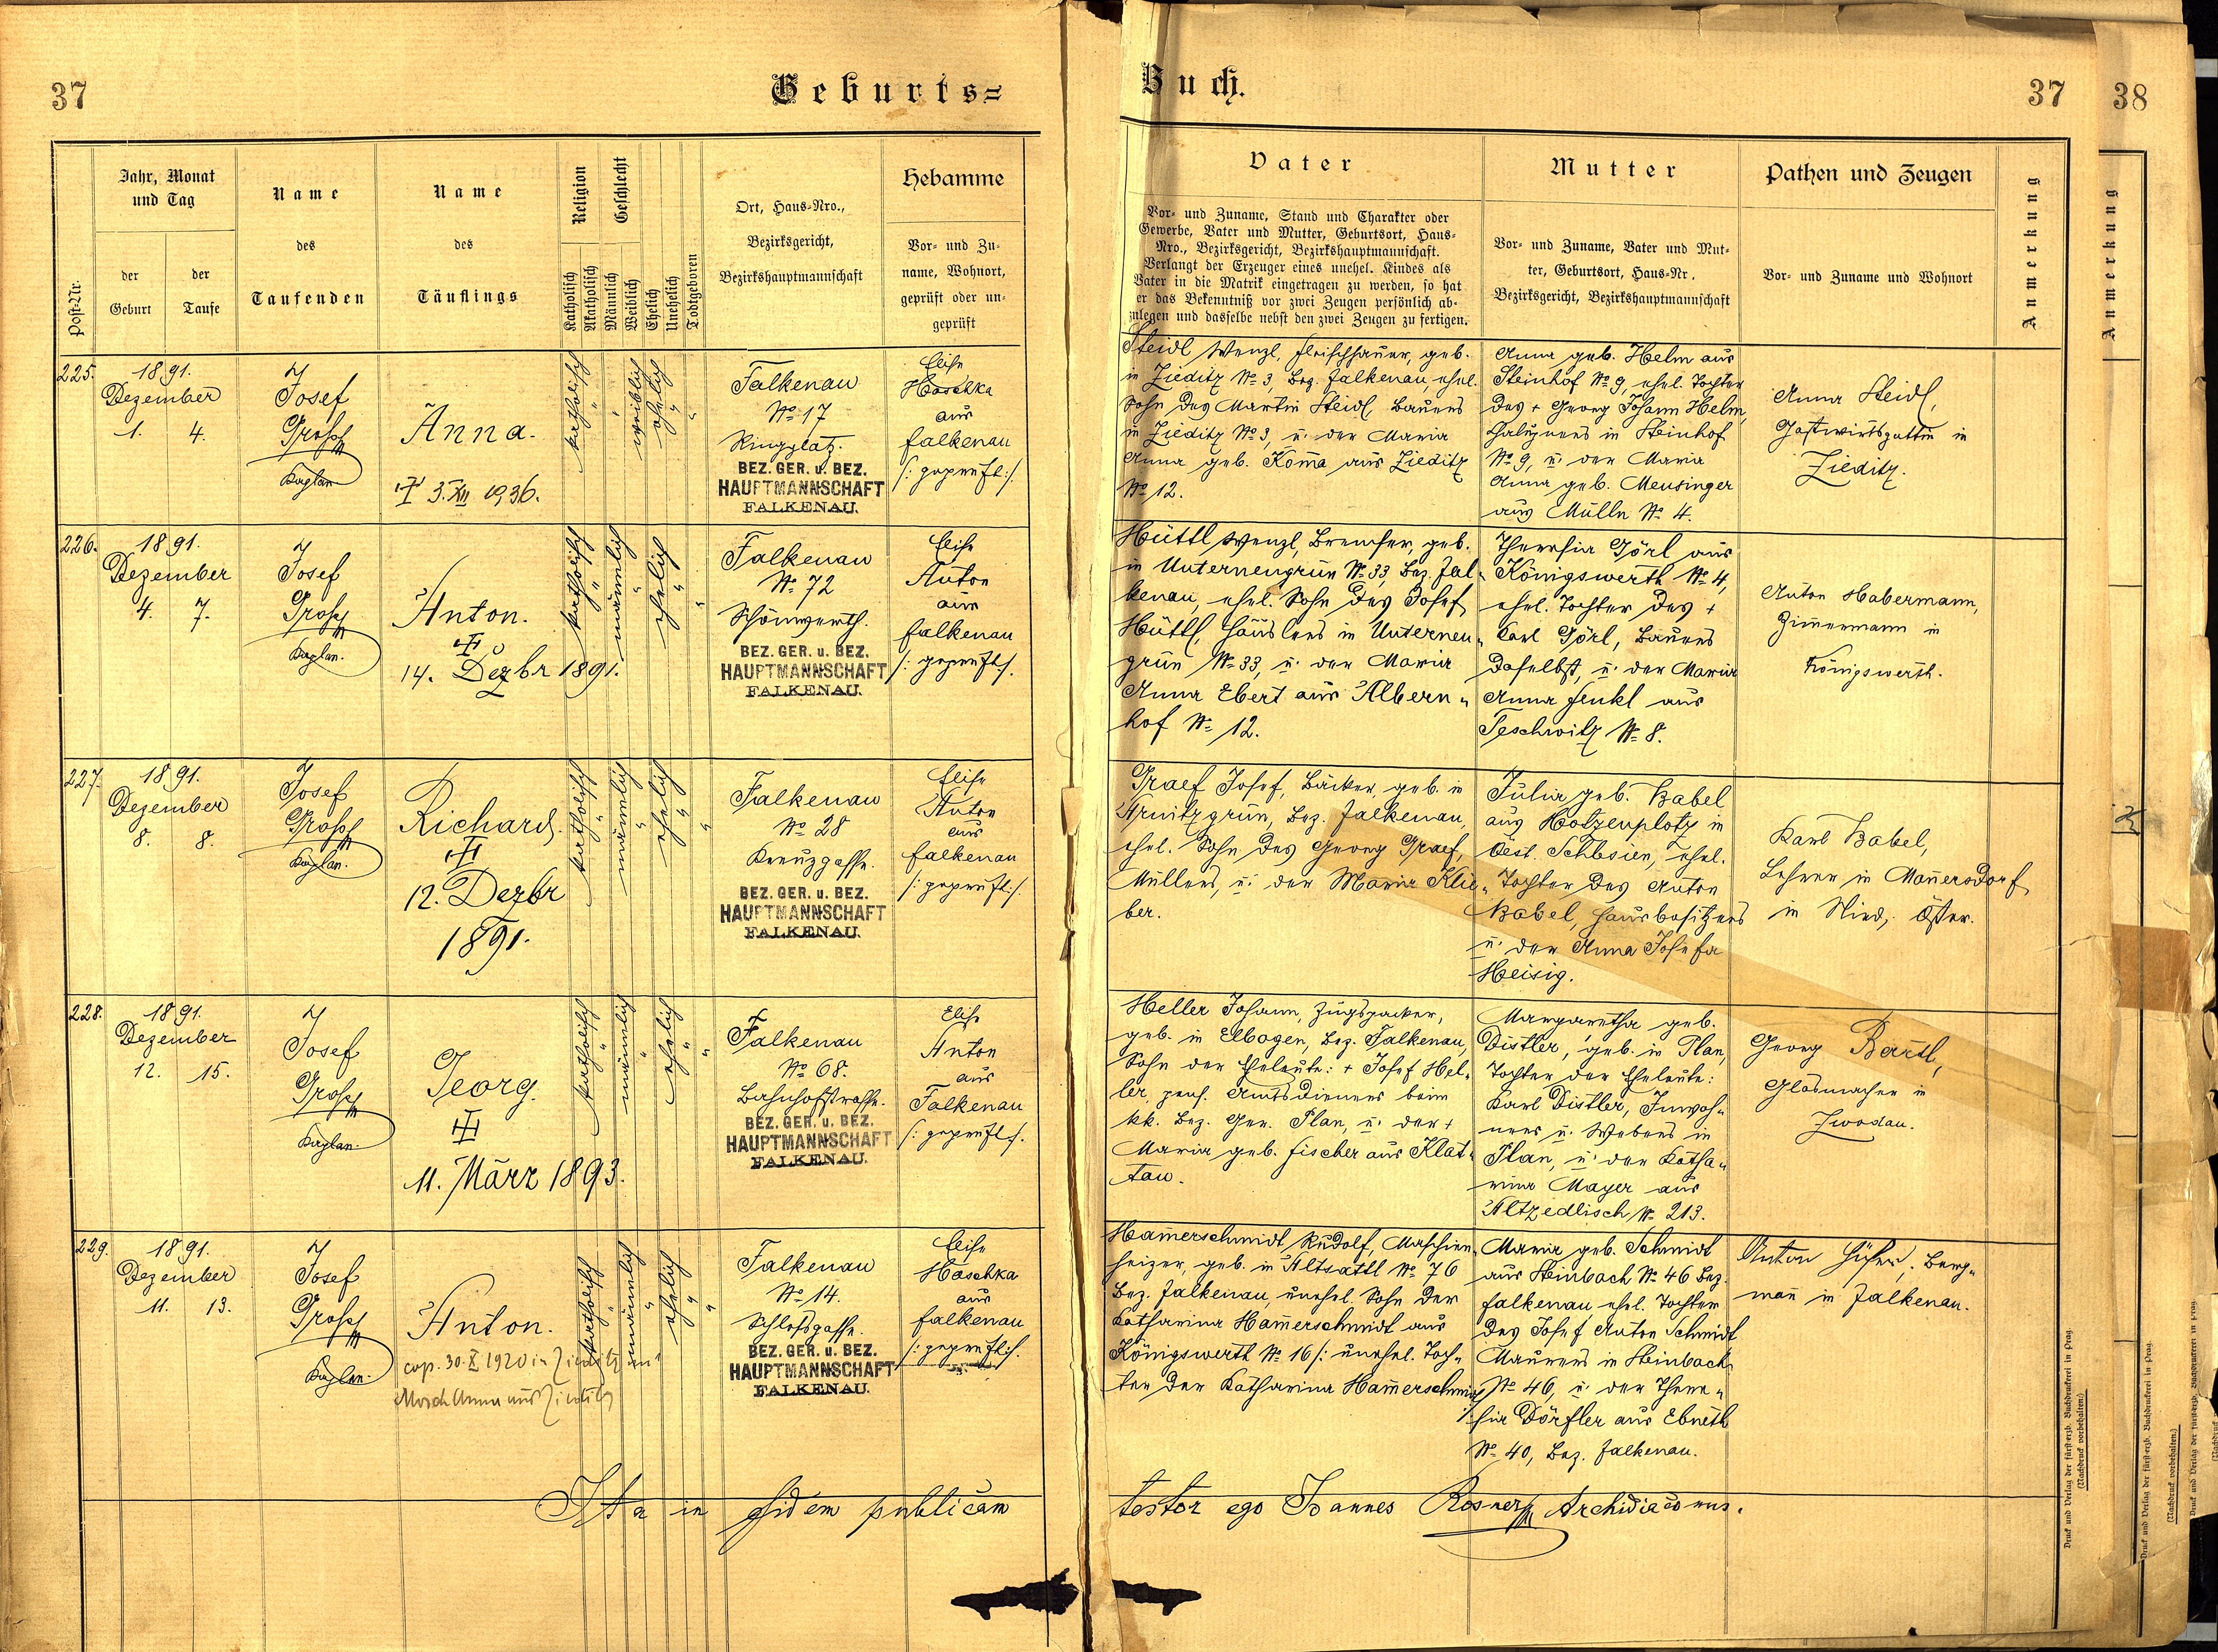 37
Geburts=
Post-Nr.
Jahr, Monat
und Tag
der
Geburt
der
Taufe
Name
des
Taufenden
Name
des
Täuflings
Religion
Katholisch
Akatholisch
Geschlecht
Männlich
Weiblich
Ehelich
Unehelich
Todtgeboren
Ort, Haus-Nro.,
Bezirksgericht,
Bezirkshauptmannschaft
Hebamme
Vor- und Zu-
name, Wohnort,
geprüft oder un-
geprüft
225.
1891.
Dezember
1. 4.
Josef
Grosch
Kaplan
Anna.
3. XII 1936.
katholisch
weiblich
ehelich
Falkenau
No 17
Ringplatz.
BEZ. GER. u. BEZ.
HAUPTMANNSCHAFT
FALKENAU.
Elise
Haschka
aus
Falkenau
/: geprüft :/.
226.
1891.
Dezember
4. 7.
Josef
Grosch
Kaplan.
Anton.
14. Dezbr 1891.
katholisch
männlich
ehelich
Falkenau
No 72
Schönwerth.
BEZ. GER. u. BEZ.
HAUPTMANNSCHAFT
FALKENAU.
Elise
Anton
aus
Falkenau
/: geprüft :/.
227.
1891.
Dezember
8. 8.
Josef
Grosch
Kaplan.
Richard.
12. Dezbr
1891.
katholisch
männlich
ehelich
Falkenau
No 28
Kreuzgasse.
BEZ. GER. u. BEZ.
HAUPTMANNSCHAFT
FALKENAU.
Elise
Anton
aus
Falkenau
/: geprüft :/.
228.
1891.
Dezember
12. 15.
Josef
Grosch
Kaplan.
Georg.
11. März 1893.
katholisch
männlich
ehelich
Falkenau
No 68.
Bahnhofstrasse.
BEZ. GER. u. BEZ.
HAUPTMANNSCHAFT
FALKENAU.
Elise
Anton
aus
Falkenau
/: geprüft :/.
229.
1891.
Dezember
11. 13.
Josef
Grosch
Kaplan.
Anton.
cop. 30. X 1920 in Zieditz mit
Anna aus Zieditz
katholisch
männlich
ehelich
Falkenau
No 14.
Schlossgasse.
BEZ. GER. u. BEZ.
HAUPTMANNSCHAFT
FALKENAU.
Elise
Haschka
aus
Falkenau
/: geprüft :/.
Ita in fidem publicam
Buch.
37
Vater
Vor- und Zuname, Stand und Charakter oder
Gewerbe, Vater und Mutter, Geburtsort, Haus-
Nro., Bezirksgericht, Bezirkshauptmannschaft.
Verlangt der Erzeuger eines unehel. Kindes als
Vater in die Matrik eingetragen zu werden, so hat
er das Bekenntniß vor zwei Zeugen persönlich ab-
zulegen und dasselbe nebst den zwei Zeugen zu fertigen.
Mutter
Vor- und Zuname, Vater und Mut-
ter, Geburtsort, Haus-Nr.
Bezirksgericht, Bezirkshauptmannschaft
Pathen und Zeugen
Vor- und Zuname und Wohnort
Anmerkung
Steidl Wenzl, Fleischhauer, geb.
in Zieditz No 3, Bez. Falkenau, ehel.
Sohn des Martin Steidl Bauers
in Zieditz No 3, u. der Maria
Anna geb. Koma aus Zieditz
No 12.
Anna geb. Helm aus
Steinhof No 9, ehel. Tochter
des + Georg Johann Helm,
Chaluppners in Steinhof
No 9, u. der Maria
Anna geb. Meusinger
aus Mülln No 4.
Anna Steidl,
Gastwirtsgattin in
Zieditz.
Hüttl Wenzl, Bremser, geb.
in Unterneugrün No 33, Bez. Fal-
kenau, ehel. Sohn des Josef
Hüttl Häuslers in Unterneu-
grün No 33, u. der Maria
Anna Ebert aus Albern-
hof No 12.
Theresia Görl aus
Königswerth No 4,
ehel. Tochter des +
Karl Görl, Bauers
daselbst, u. der Maria
Anna Fenkl aus
Teschwitz No 8.
Anton Habermann,
Zimmermann in
Königswerth.
Graef Josef, Bäcker, geb. in
Arnitzgrün, Bez. Falkenau,
ehel. Sohn des Georg Graef,
Müllers, u. der Maria Klie-
ber.
Julia geb. Babel
aus Hotzenplotz in
öst. Schlesien, ehel.
Tochter des Anton
Babel, Hausbesitzers
u. der Anna Josefa
Heisig.
Karl Babel,
Lehrer in Manersdorf
in Nied. Öster.
Heller Johann, Zugspacker,
geb. in Elbogen, Bez. Falkenau,
Sohn der Eheleute: + Josef Hel-
ler, pens. Amtsdieners beim
kk. Bez. Ger. Plan, u. der +
Maria geb. Fischer aus Klat-
tau.
Margaretha geb.
Distler, geb. in Plan,
Tochter der Eheleute:
Karl Distler, Inwoh-
ners u. Webers in
Plan, u. der Katha-
rina Mayer aus
Altzedlisch No 213.
Georg Bartl,
Glasmacher in
Zwodau.
Hamerschmidt Rudolf, Maschien-
heizer, geb. in Altsattl No 76
Bez. Falkenau, unehel. Sohn der
Katharina Hamerschmidt aus
Königswerth No 16 /: unehel. Toch-
ter der Katharina Hamerschmidt :/
Maria geb. Schmidt
aus Steinbach No 46 Bez.
Falkenau ehel. Tochter
des Josef Anton Schmidt
Maurers in Steinbach
No 46, u. der There-
sia Dörfler aus Ebmeth
No 40, Bez. Falkenau.
Anton Berg-
man in Falkenau.
testor ego Joannes Rosner Archidiaconus.
Druck und Verlag der fürst-erzb. Buchdruckerei in Prag.
(Nachdruck vorbehalten.)
38
Anmerkung
Druck und Verlag der fürst-erzb. Buchdruckerei in Prag.
(Nachdruck vorbehalten.)